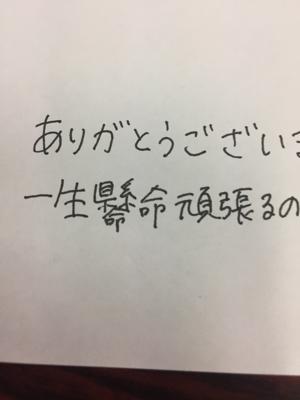 ありがとうございま
一生懸命頑張るの